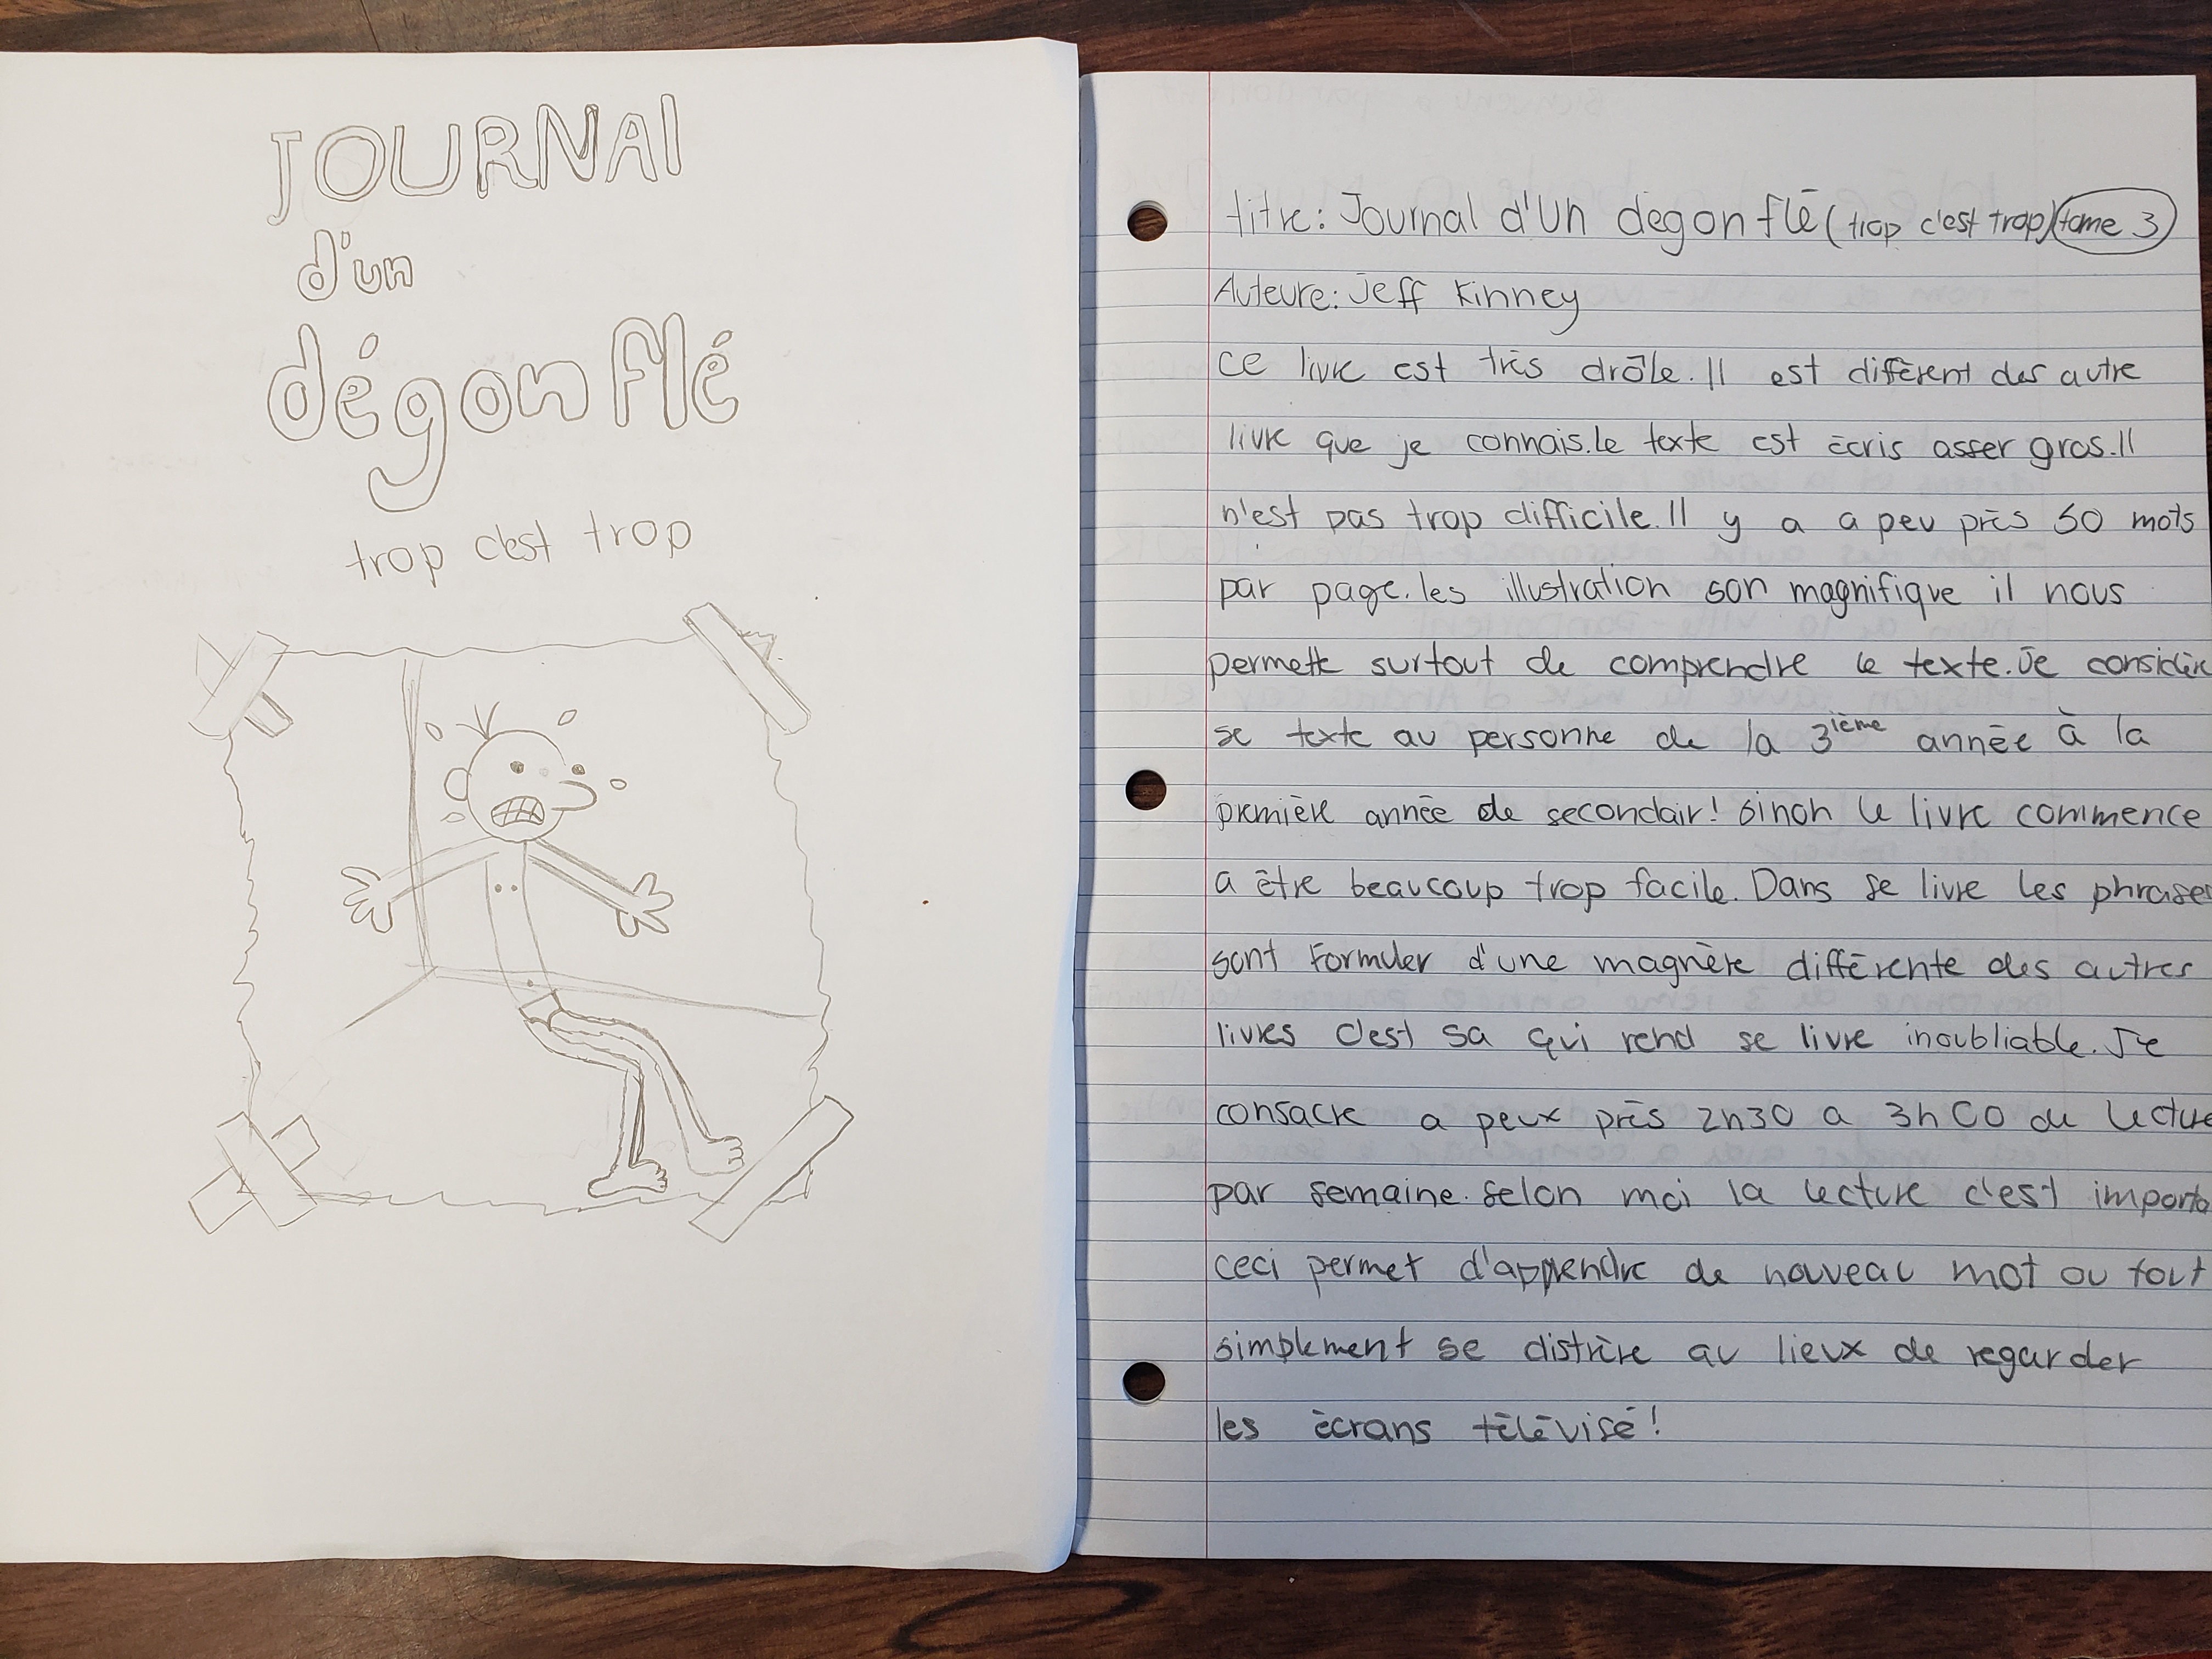 JOURNAl
d'un
dégonflé
trop c'est trop
titre: Journal d'un dégonflé (trop c'est trop) tome 3
Auteure: Jeff Kinney
ce livre est très drôle. Il est différent des autre
livre que je connais. le texte est écris asser gros. Il
n'est pas trop difficile. Il y a a peu près 50 mots
par page. les illustration son magnifique il nous
permette surtout de comprendre le texte. Je considère
se texte au personne de la 3ième année à la
première année de secondair! Sinon le livre commence
a être beaucoup trop facile. Dans se livre les phrases
sont formuler d'une magnère différente des autres
livres c'est sa qui rend se livre inoubliable. Je
consacre a peux près 2h30 a 3h00 de lecture
par semaine. selon moi la lecture c'est importa
ceci permet d'apprendre de nouveau mot ou tout
simplement se distrère au lieux de regarder
les écrans télévisé!